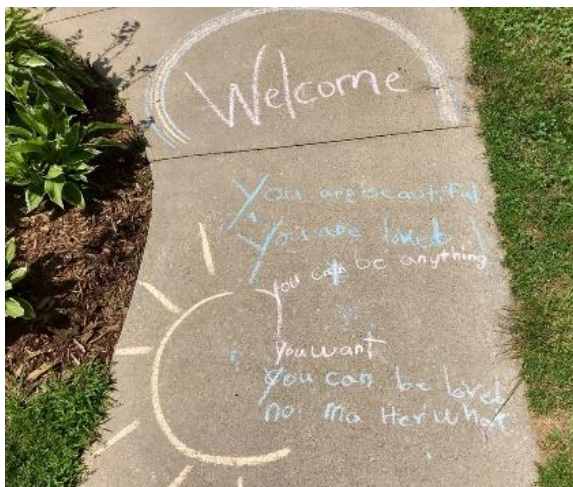 Welcome
You are beautiful
You are loved
You can be anything
you want
you can be loved
no matter what